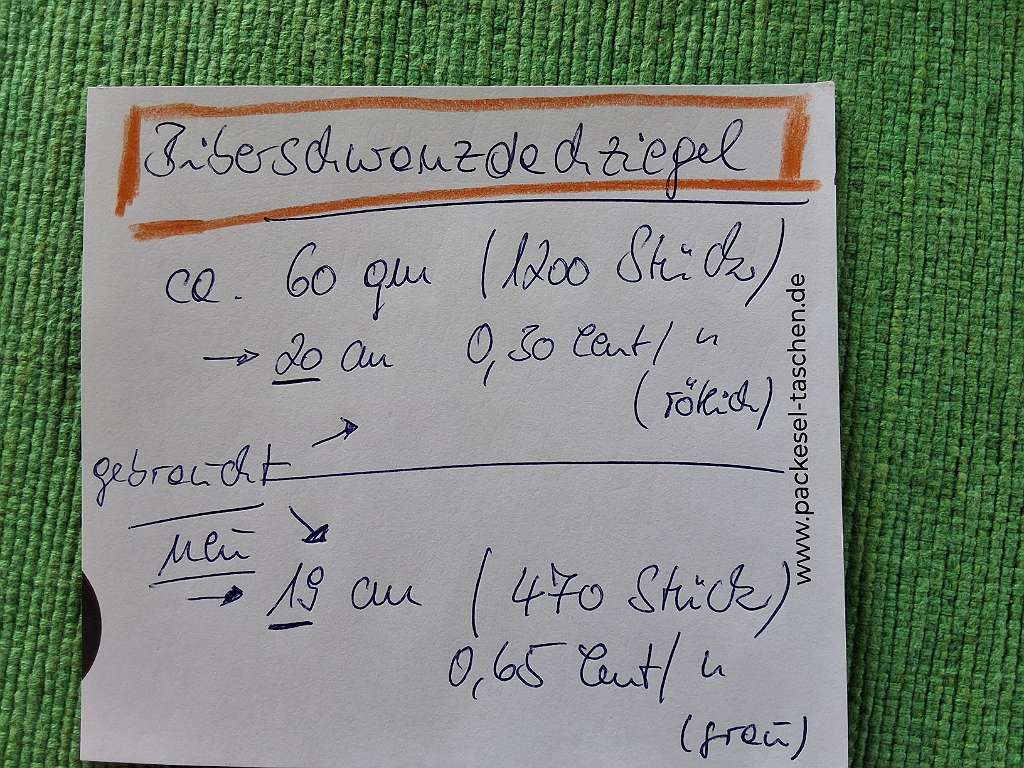 Biberschwanzdachziegel
ca. 60 qm (1200 Stück)
→ 20 cm 0,30 Cent/ "
(rötlich)
gebraucht
neu
→ 19 cm (470 Stück)
0,65 Cent/ "
(grau)
www.packesel-taschen.de